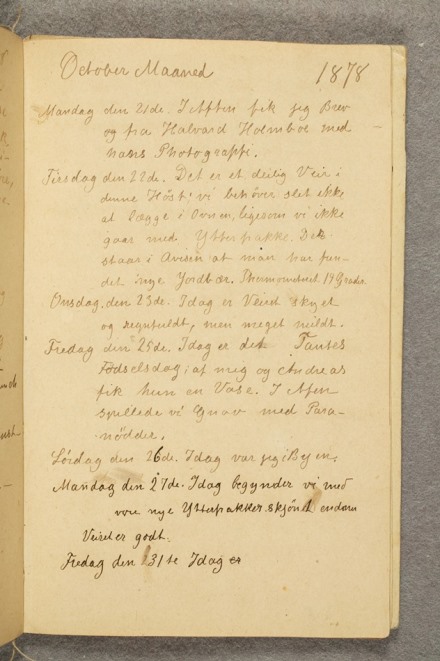 October Maaned 1878
Mandag den 21de. I Aften fik jeg Brev
og fra Halvard Holmboe med
hans Photographi.
Tirsdag den 22de. Det er et deilig Veir i
denne Høst; vi behøver slet ikke
at lægge i Ovnen, ligesom vi ikke
gaar med Ytterjakke. Det
staar i Avisen at man har fun-
det nye Jordbær. Thermometret 14 Grader.
Onsdag, den 23de. Idag er Veiret skyet
og regnfuldt, men meget mildt.
Fredag den 25de. Idag er det Tantes
Fødselsdag; af meg og Andreas
fik hun en Vase. I Aften
spillede vi Gnav med Para-
nødder.
Lørdag den 26de. Idag var jeg i Byen.
Mandag den 27de. Idag begynder vi med
vore nye Ytterjakker skjønt endnu
Veiret er godt.
Fredag den 31te Idag er